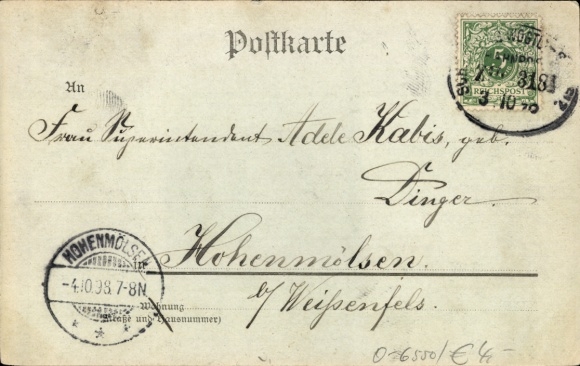 Postkarte
5
REICHSPOST
ZUG 3181
3 10 98
An
Frau Superintendent Adele Kabis, geb.
Dinger.
HOHENMÖLSEN
-4.10.98.7-8N
* * *
in
Hohenmölsen.
b/ Weißenfels.
Wohnung
(Straße und Hausnummer)
0-6550/€ 4,-